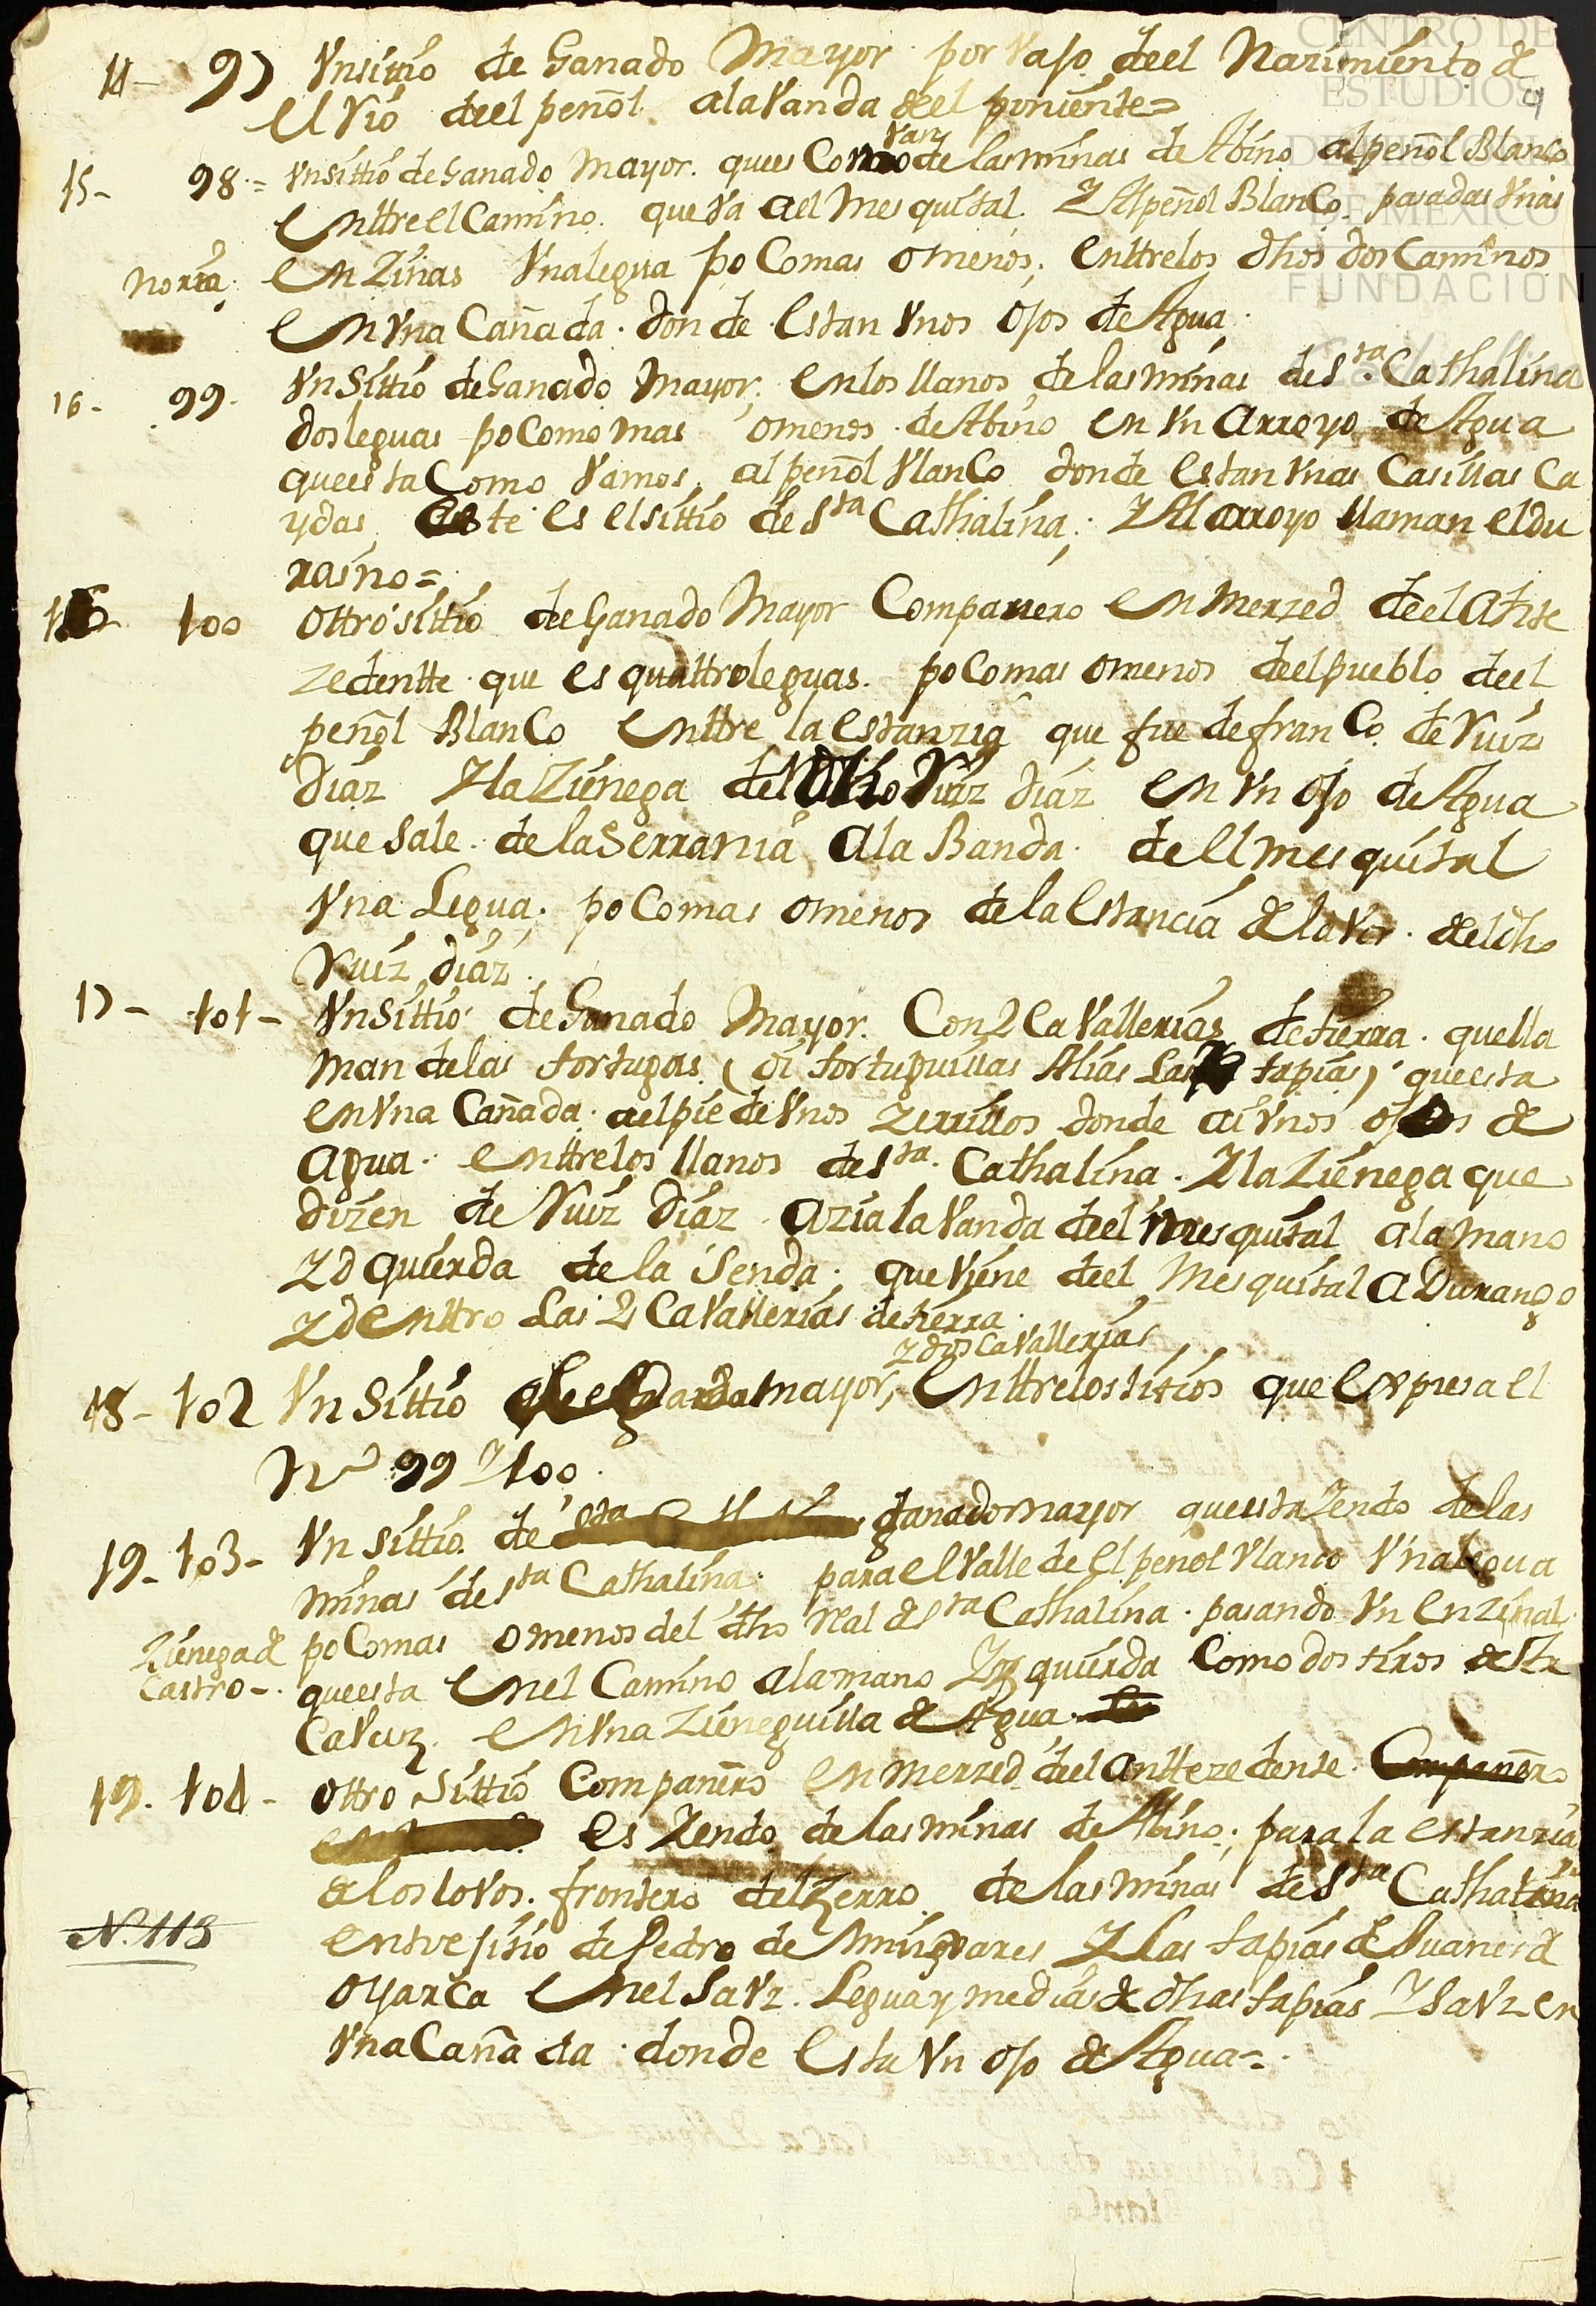 CENTRO DE
ESTUDIOS
DE HISTORIA
DE MEXICO
FUNDACION
9
14- 97 Vn sittio de Ganado Mayor por vajo deel Nazimiento de
el Rio deel peñol ala Vanda deel poniente=
15- 98.= Vn sittio de Ganado Mayor. que es Como van de las minas de Abino al peñol Blanco
enttre el Camino que va ael Mesquital Y Al peñol BlanCo pasadas Vnas
noria. enZinas Vna legua po Co mas o menos; enttre los dhos dos Caminos
en Vna Cañada donde Estan Vnos ojos de Agua
16- 99. Vn Sittio de Ganado Mayor; en los llanos de las minas de Sta. Cathalina
dos leguas poCo mas omenos de Abino en Vn arroyo de Agua
que esta Como Vamos al peñol VlanCo donde Estan Vnas Casillas Ca
ydas este es el sittio de Sta Cathalina; Y Al arroyo llaman el du
rasno=
16 100 ottro sittio de Ganado Mayor Compañero en Merzed deel Ante
zedentte que es quattro leguas poComas omenos deel pueblo deel
peñol BlanCo enttre la Estanzia que fue de franCo de Ruiz
Diaz Y la Zienega del Ruiz Diaz en Vn ojo de Agua
que Sale de la Serrania Ala Banda de el mesquital
Vna Legua; poComas omenos de la Estancia de lavor del dho
Ruiz diaz
17- 101- Vn Sittio de Ganado Mayor. Con 2 CaVallerias de tierra que lla
man de las tortugas (o tortuguillas Alias Las tapias) que esta
en Vna Cañada ael pie de Vnos Zerrillos donde ai Vnos ojos de
Agua enttre los llanos de Sta. Cathalina. Y la Zienega que
dizen de Ruiz Diaz Azia la Vanda deel mesquital ala mano
Yzquierda de la Senda; que Viene deel Mesquital a Durango
Y denttro Las 2 CaVallerias de tierra
Y dos CaVallerias
18- 102 Vn Sittio de Ganado mayor, enttre los sitios que Expresa el
No 99 Y 100.
19- 103- Vn sittio de ganado mayor que esta Yendo de las
minas de Sta Cathalina para el Valle de El peñol Vlanco Vna legua
Zienega de poComas omenos del dho Real de Sta Cathalina pasando Vn enzinal
Castro-. que esta enel Camino ala mano Yzquierda Como dos tiros de Ar
CaVuz en Vna Zieneguilla de Agua
19. 104- ottro Sittio Compañero en Merzed deel Anttezedente Compañero
es Yendo de las minas de Abino; para la estanzia
de los lovos frontero del Zerro de las minas de Sta Cathalina
N. 113 entre sitio de Pedro de Minjares Y las tapias de Juanes de
oyarca enel Sauz. Legua y media de dhas tapias Y Sauz en
Vna Cañada donde Esta Vn ojo de Agua=